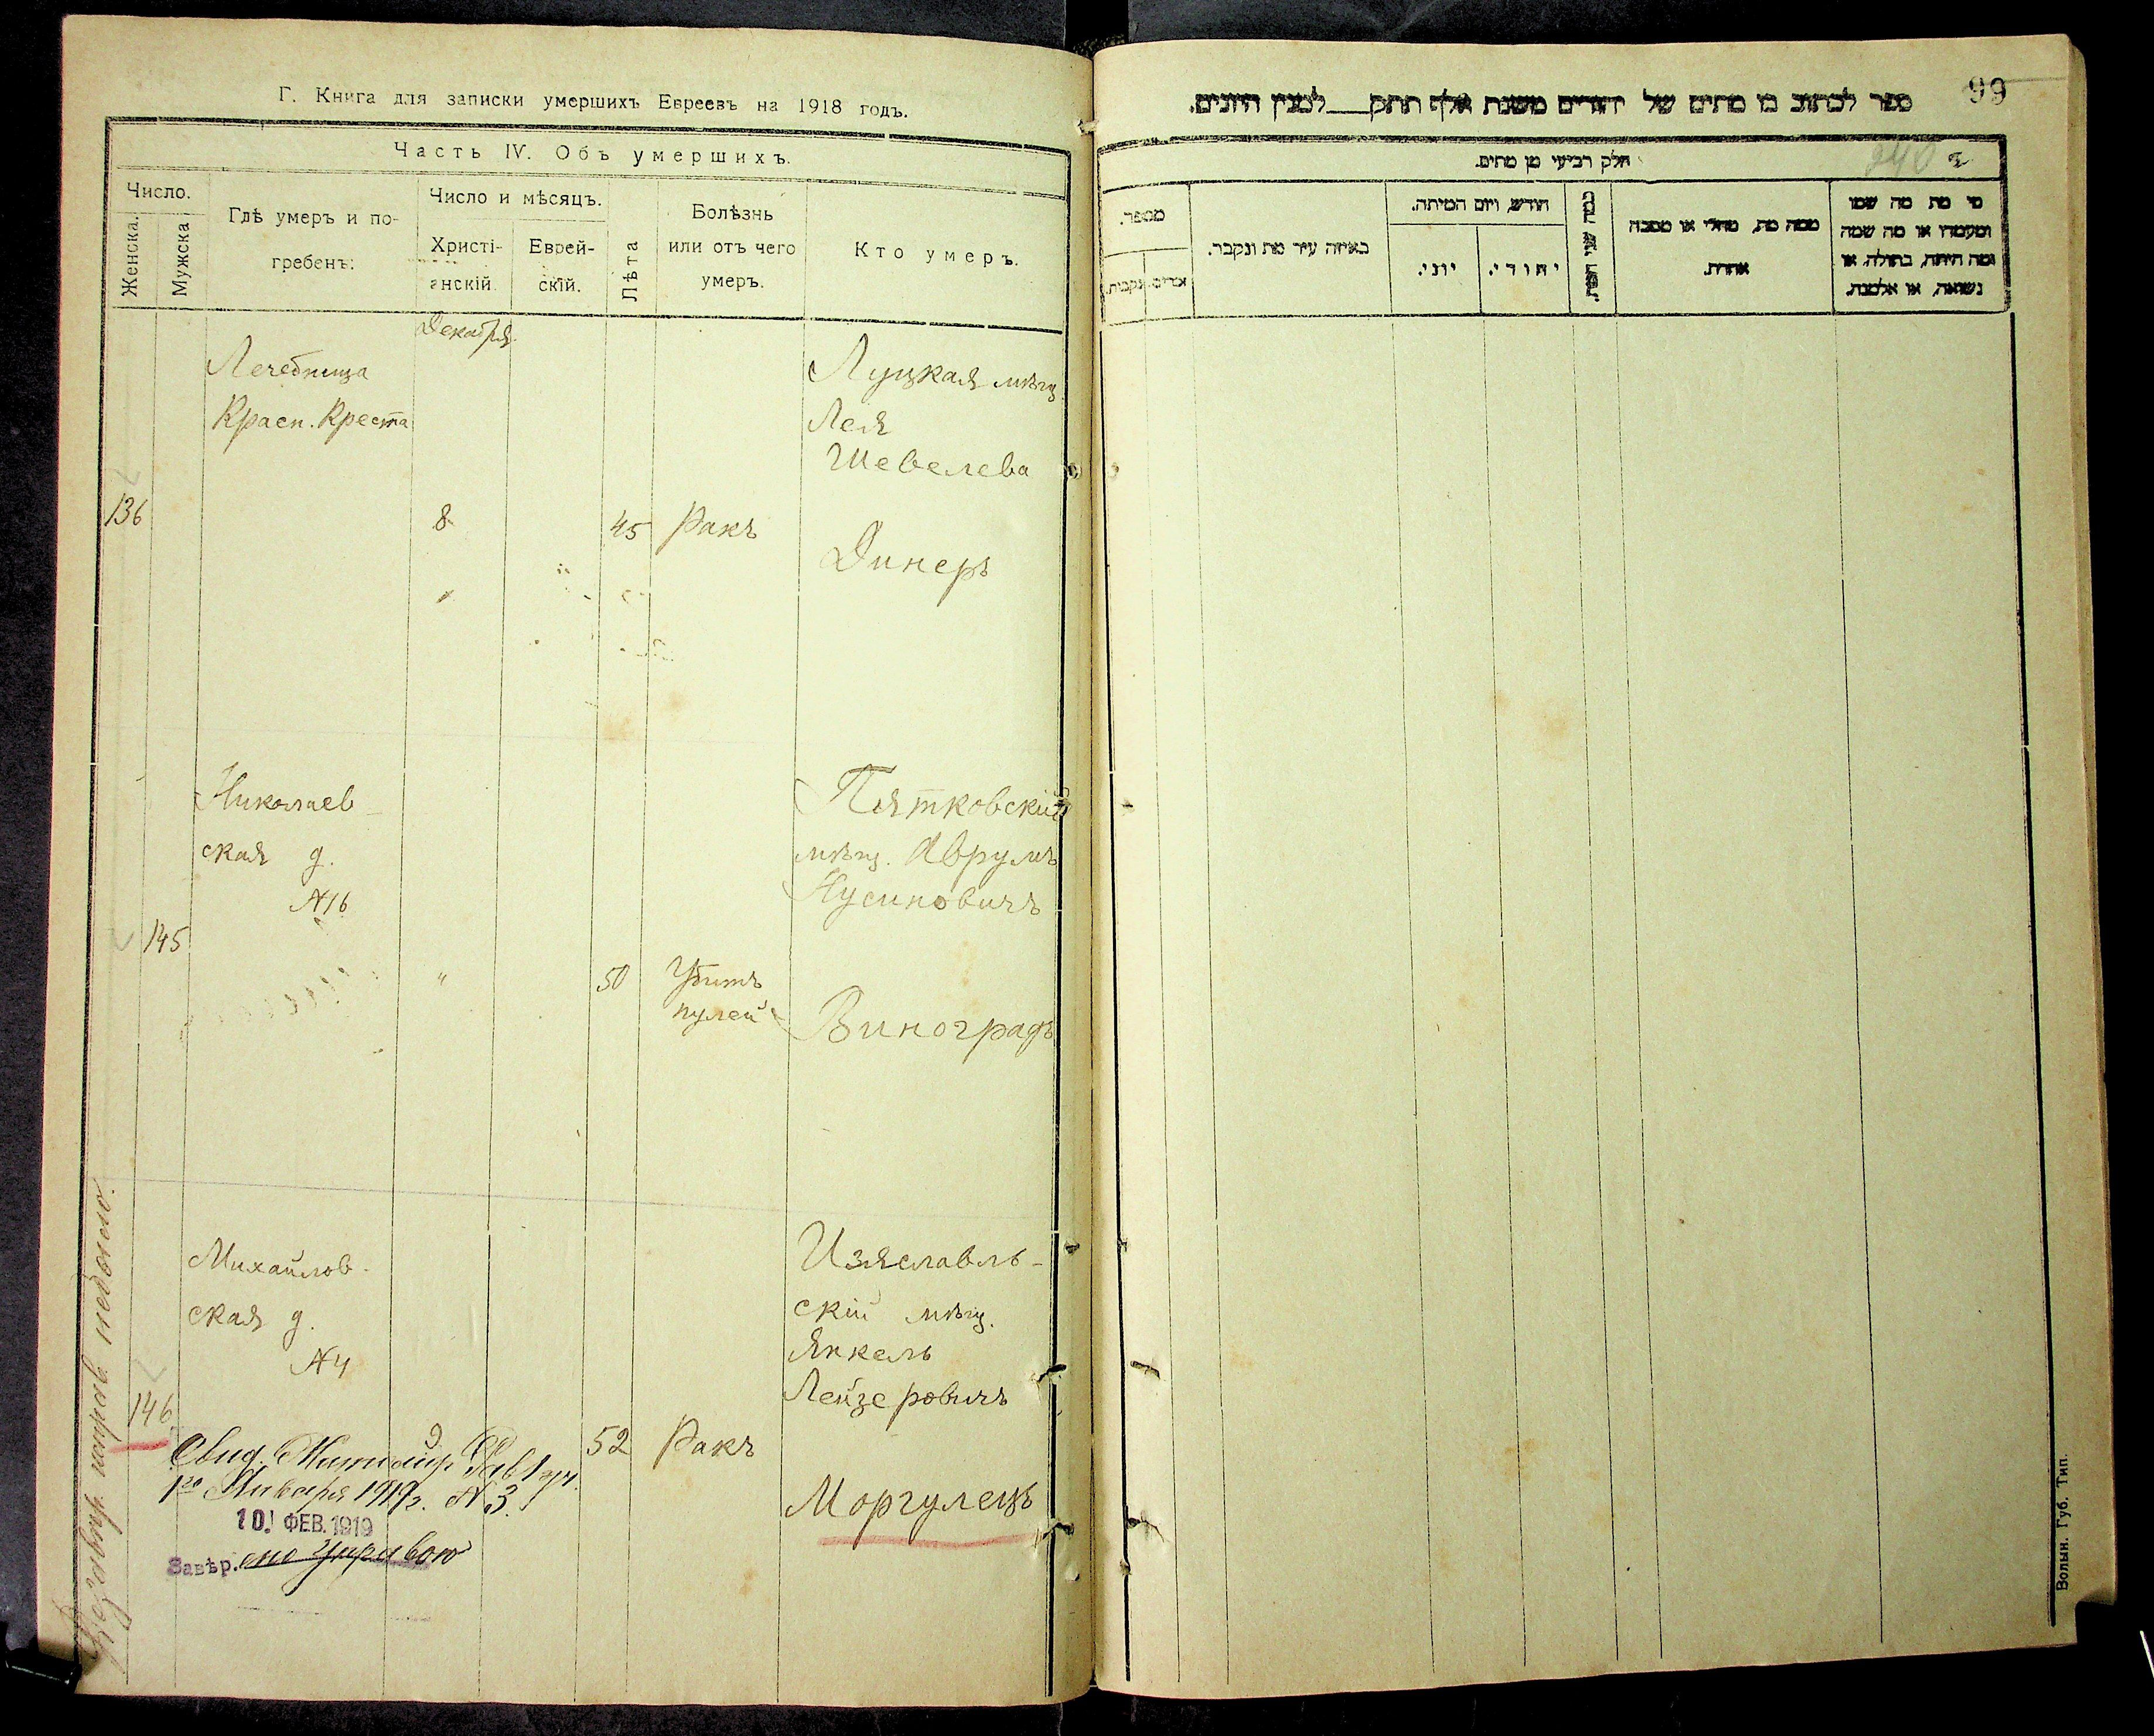 Г. Книга для записки умершихъ Евреевъ на 1918 годъ.
Часть IV. Объ умершихъ.
Число.
Женска.
Мужска
Гдѣ умеръ и по-
гребенъ:
Число и мѣсяцъ.
Христі-
анскій.
Еврей-
скій.
Лѣта
Болѣзнь
или отъ чего
умеръ.
Кто умеръ.
Декабря
Лечебница
Красн. Креста
Луцкая мѣщ.
Лея
Шевелева
136
8
45
Ракъ
Динеръ
Николаев-
ская д.
№16
Пятковскій
мѣщ. Аврумъ
Нусиновичъ
145
"
50
Убитъ
пулей
Виноградъ
Михайлов-
ская д.
№4
Изяславль-
скій мѣщ.
Янкель
Лейзеровичъ
146
9
52
Ракъ
Моргулецъ
Свид. Житомир.
1го Января 1919г. №3.
10. ФЕВ. 1919
Завѣр.
99
ספר לכתוב בו מתים של יהודים משנת אלף תתק___למנין היונים.
חלק רביעי מן מתים.
מספר.
זכרים.
נקבות.
באיזה עיר מת ונקבר.
חודש, ויום המיתה.
יוני.
יהודי.
ממה מת, מחלי או מסבה
אחרת.
מי מת מה שמו
ומעמדו או מה שמה
ומה היתה, בתולה, או
נשואה, או אלמנה.
Волын. Губ. Тип.